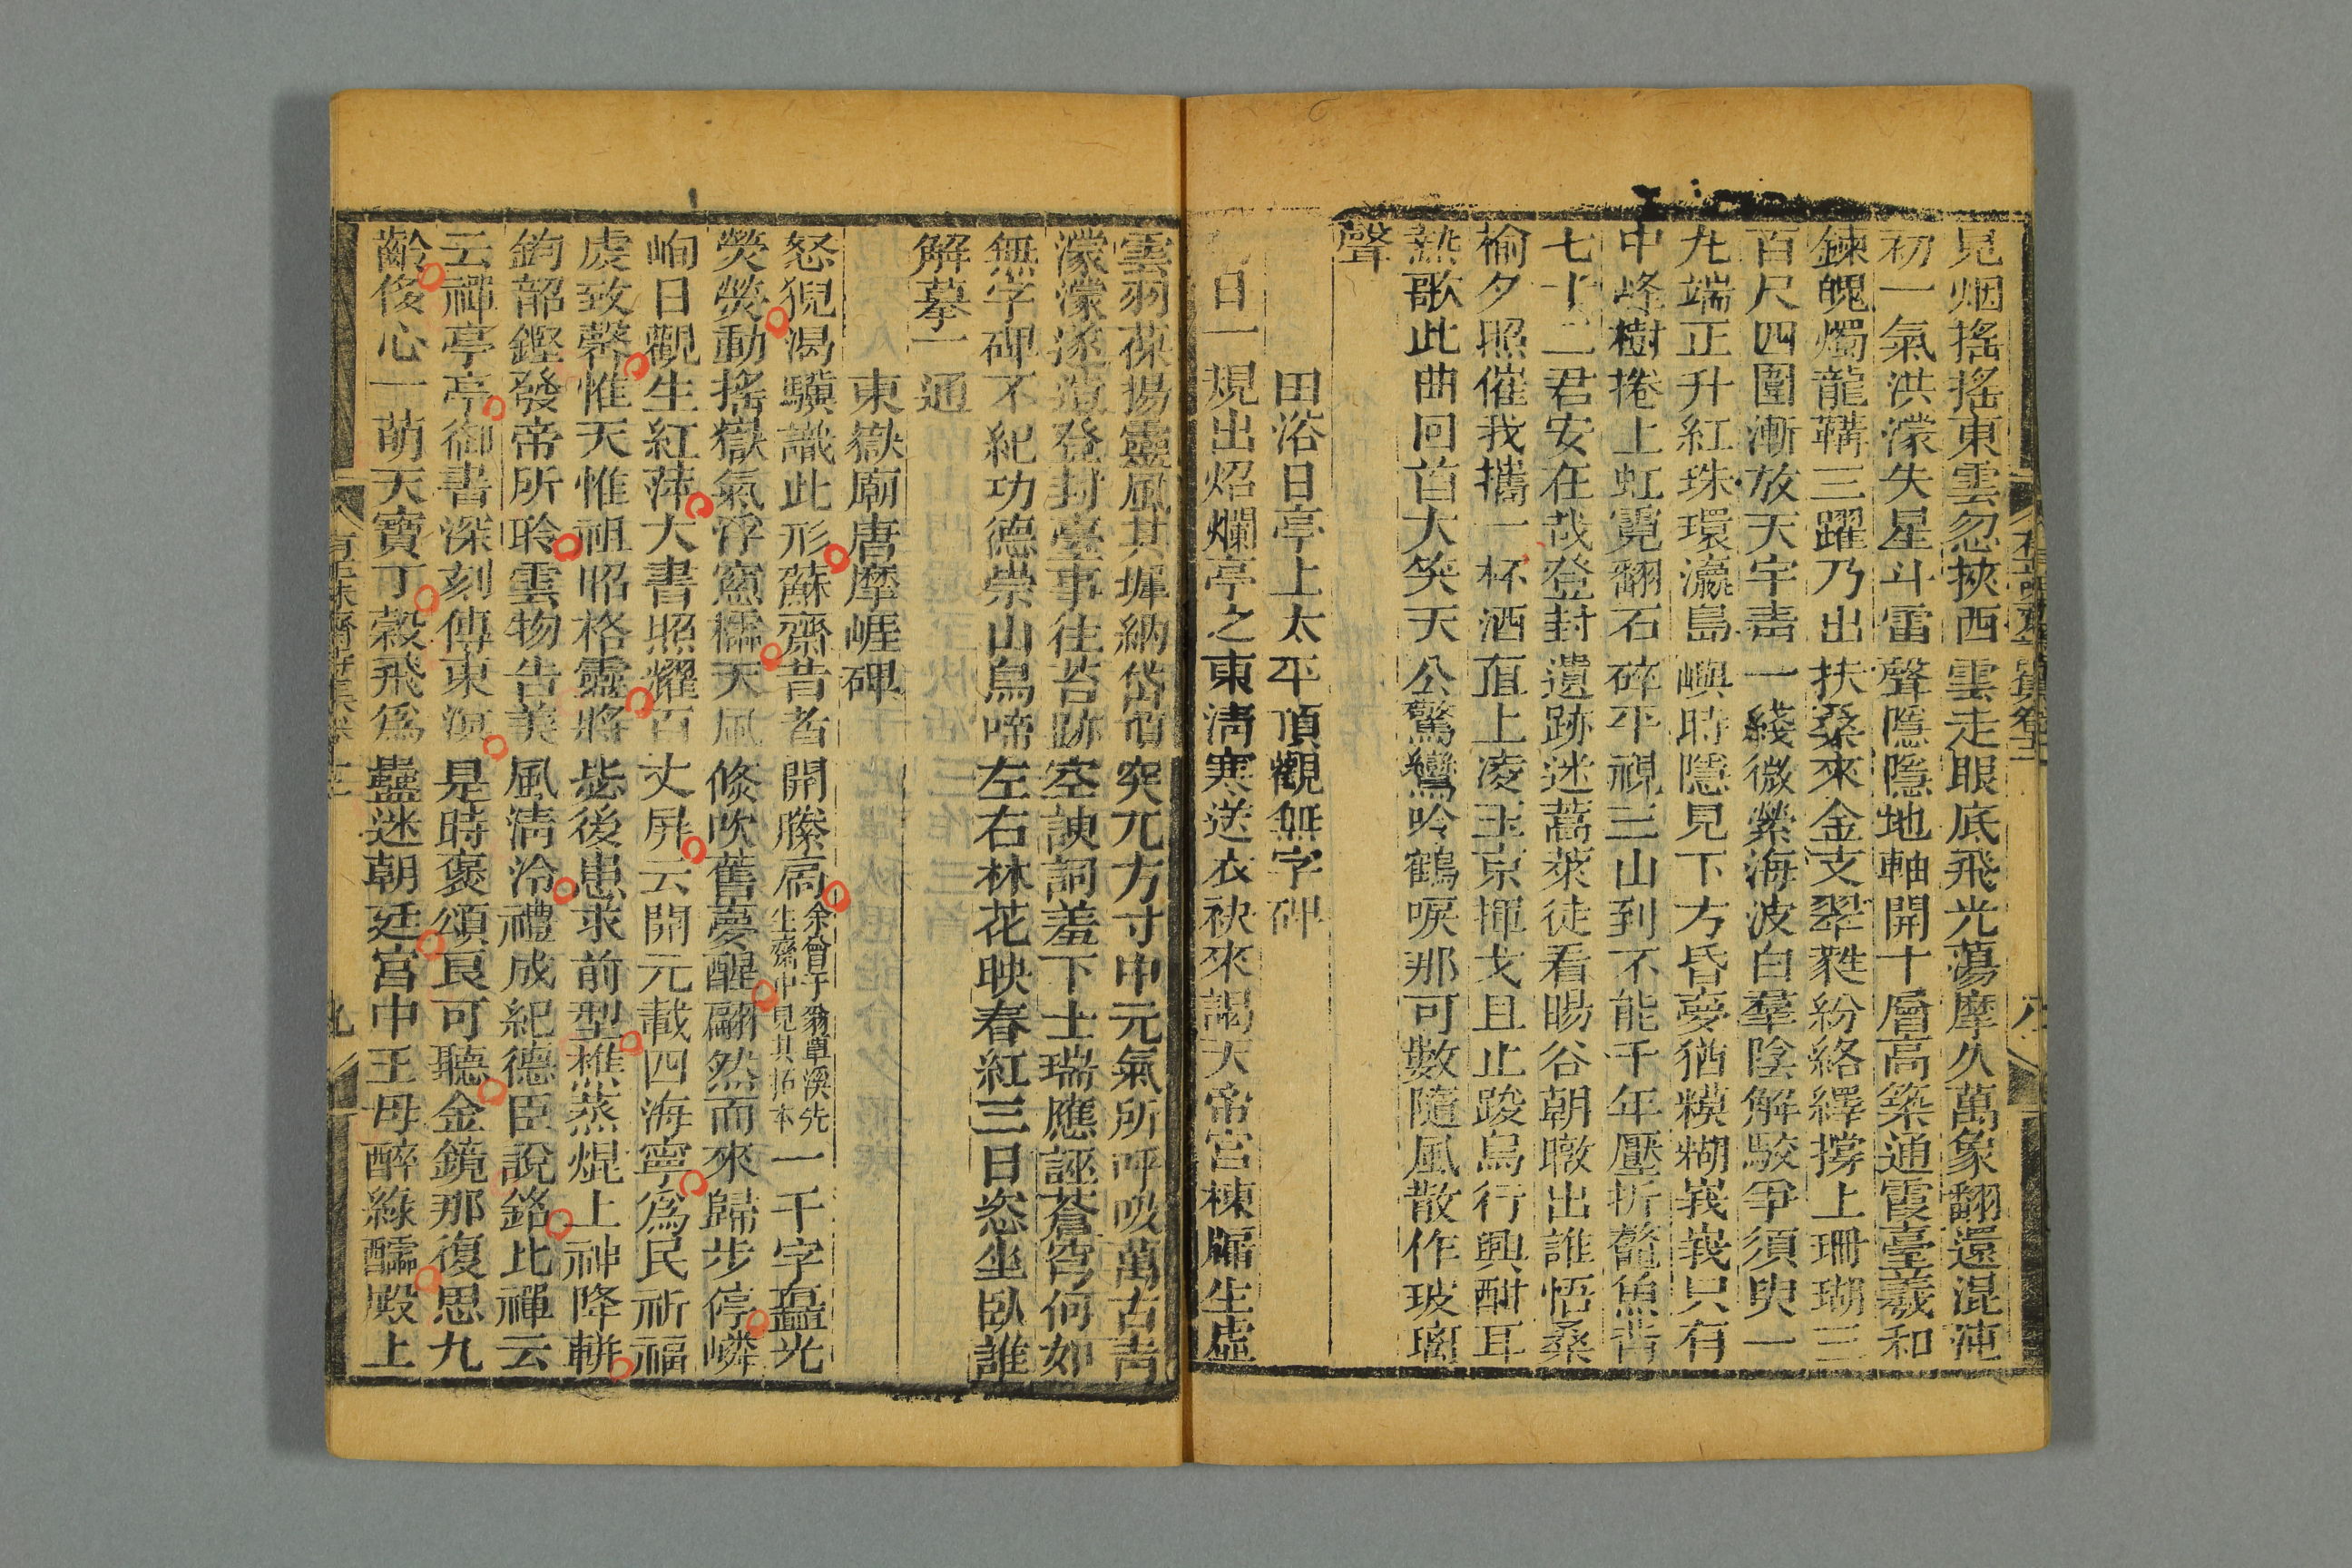 見烟搖搖東雲忽挾西雲走眼底飛光蕩摩久萬象翻還混沌
初一氣洪濛失星斗雷聲隱隱地軸開十層高築通霞臺羲和
鍊魄燭龍鞲三躍乃出扶桑來金支翠蕤紛絡繹撐上珊瑚三
百尺四圍漸放天宇青一綫微縈海波白羣陰解駮爭須臾一
九端正升紅珠環瀛島嶼時隱見下方昏夢猶糢糊峩峩只有
中峰樹捲上虹霓翻石碎平視三山到不能千年壓折鼇魚背
七十二君安在哉登封遺跡迷蒿萊徒看暘谷朝暾出誰悟桑
榆夕照催我攜一杯酒直上凌玉京揮戈且止踆烏行興酣耳
熱歌此曲回首大笑天公驚鸞吟鶴唳那可數隨風散作玻璃
聲
田浴日亭上太平頂觀無字碑
日一規出炤爛亭之東淸寒送衣袂來謁天帝宮棟牖生虛
雲羽葆揚靈風其墀納岱頂突兀方寸中元氣所呼吸萬古靑
濛濛遂造登封臺事往苔跡空諛詞羞下士瑞應誣蒼穹何如
無字碑不紀功德崇山鳥啼左右林花映春紅三日恣坐臥誰
解摹一通
東嶽廟唐摩崕碑
怒猊渴驥識此形蘇齋昔者開縢扃余曾于翁覃溪先生齋中見其拓本一千字盡光
熒熒動搖嶽氣浮窻櫺天風倏吹舊夢醒翩然而來歸步停嶙
峋日觀生紅萍大書照耀百丈屏云開元載四海寧爲民祈福
虔致罄惟天惟祖昭格靈將毖後患求前型樵蒸焜上神降輧
鈞韶鏗發帝所聆雲物告美風淸泠禮成紀德臣說銘比禪云
云禪亭亭御書深刻傳東溟是時褒頌良可聽金鏡那復思九
齡侈心一萌天寶丁穀飛爲蠱迷朝廷宮中王母醉綠醽殿上